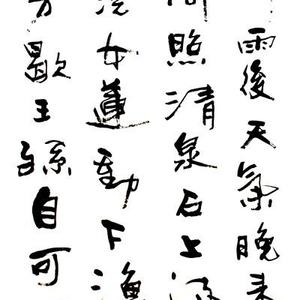 雨後天氣晚来
間照清泉石上流
浣女蓮動下漁
芳歇王孫自可